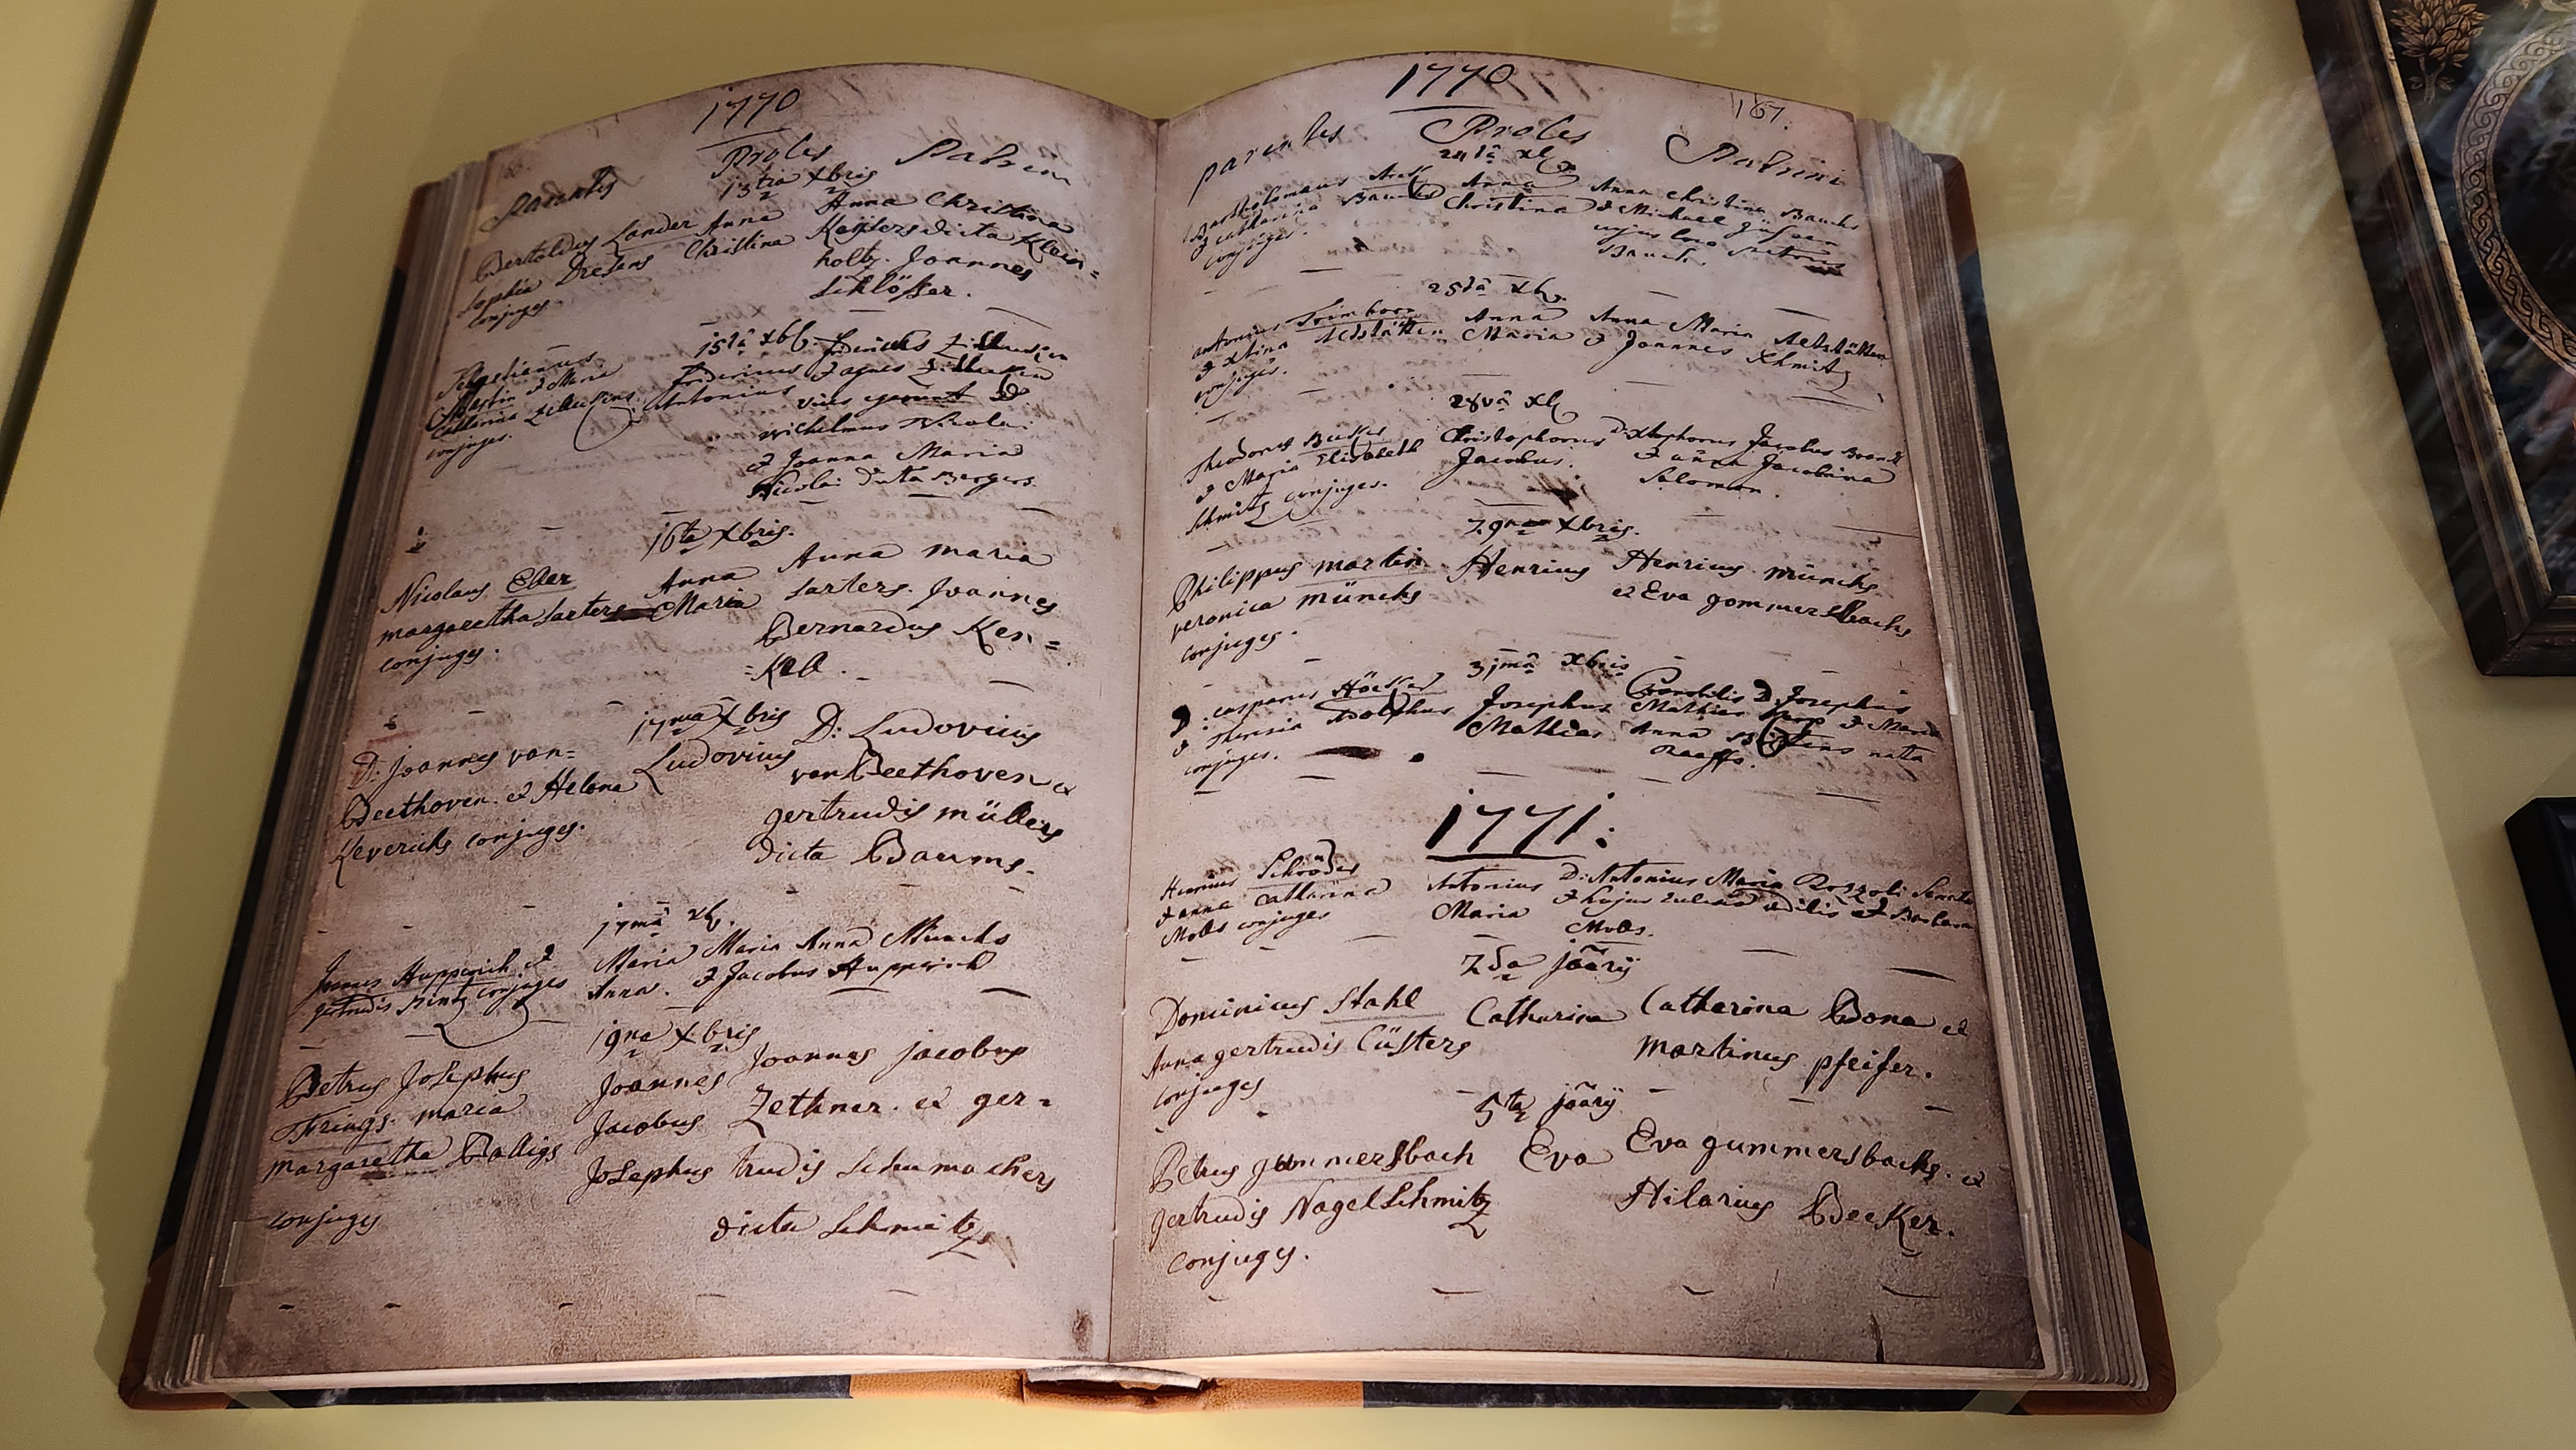 1770
Parentes Proles Patrini
13tia Xbris
Bertoldus Lander Anna Anna Christina
Sophia Dresens Christina Keysers dicta Klein=
conjuges. holtz. Joannes
Schlösser.
15tâ xb. Fridericus
Sebastianus Fridericus & agnes
Martin & Maria Antonius vices
Catharina
conjuges. Wilhelmus Nicolai
& Joanna Maria
Nicolai dicta Bergers.
16ta Xbris.
Nicolaus Eller Anna Anna maria
margaretha Sarters Maria Sarters. Joannes
conjuges. Bernardus Ken=
=Kel.
17ma Xbris
D: Joannes van= Ludovicus D: Ludovicus
Beethoven. & Helena van Beethoven &
Keverichs conjuges. gertrudis müllers
dicta Baums.
17mâ xb.
Hupperich & Maria Maria Anna
gertrudis conjuges Anna. & Jacobus Hupperich
19na Xbris
Petrus Josephus Joannes Joannes jacobus
Frings. maria Jacobus Zethner. & ger=
margaretha Balligs Josephus trudis Schumachers
conjuges dicta Schmitz.
1770 167.
parentes Proles Patrini
24tâ xb
Bartholomaus Anna Anna Christina Bauchs
& catharina Christina & Michael
conjuges. loco
Bauch.
25tâ xb.
antonius Trimborn Anna Anna Maria
& xtina Maria & Joannes Schmitz
conjuges.
28vâ xb
Theodorus Christophorus D: Xtophorus Jacobus Brandt
& Maria Elisabeth Jacobus. & anna Jacobina
Schmitz conjuges. Salomon.
29na Xbris.
Philippus martin Henricus Henricus münchs
veronica münchs & Eva gommersbachs
conjuges.
31mâ xbris
D: casparus Josephus D. Josephus
& Theresia Adolphus Mathias Mathias & Maria
conjuges. Anna nata
Raaffs.
1771:
Henricus Schröder Antonius D: Antonius Maria
& anna catharina Maria & hujus & Barbara
Molls conjuges Molls.
2da jäarÿ
Dominicus Stahl Catharina Catharina Bona &
Anna gertrudis Cüsters Martinus pfeifer.
conjuges
5ta jäarÿ
Petrus gummersbach Eva Eva gummersbachs. &
gertrudis Nagelschmitz Hilarius Becker.
conjuges.